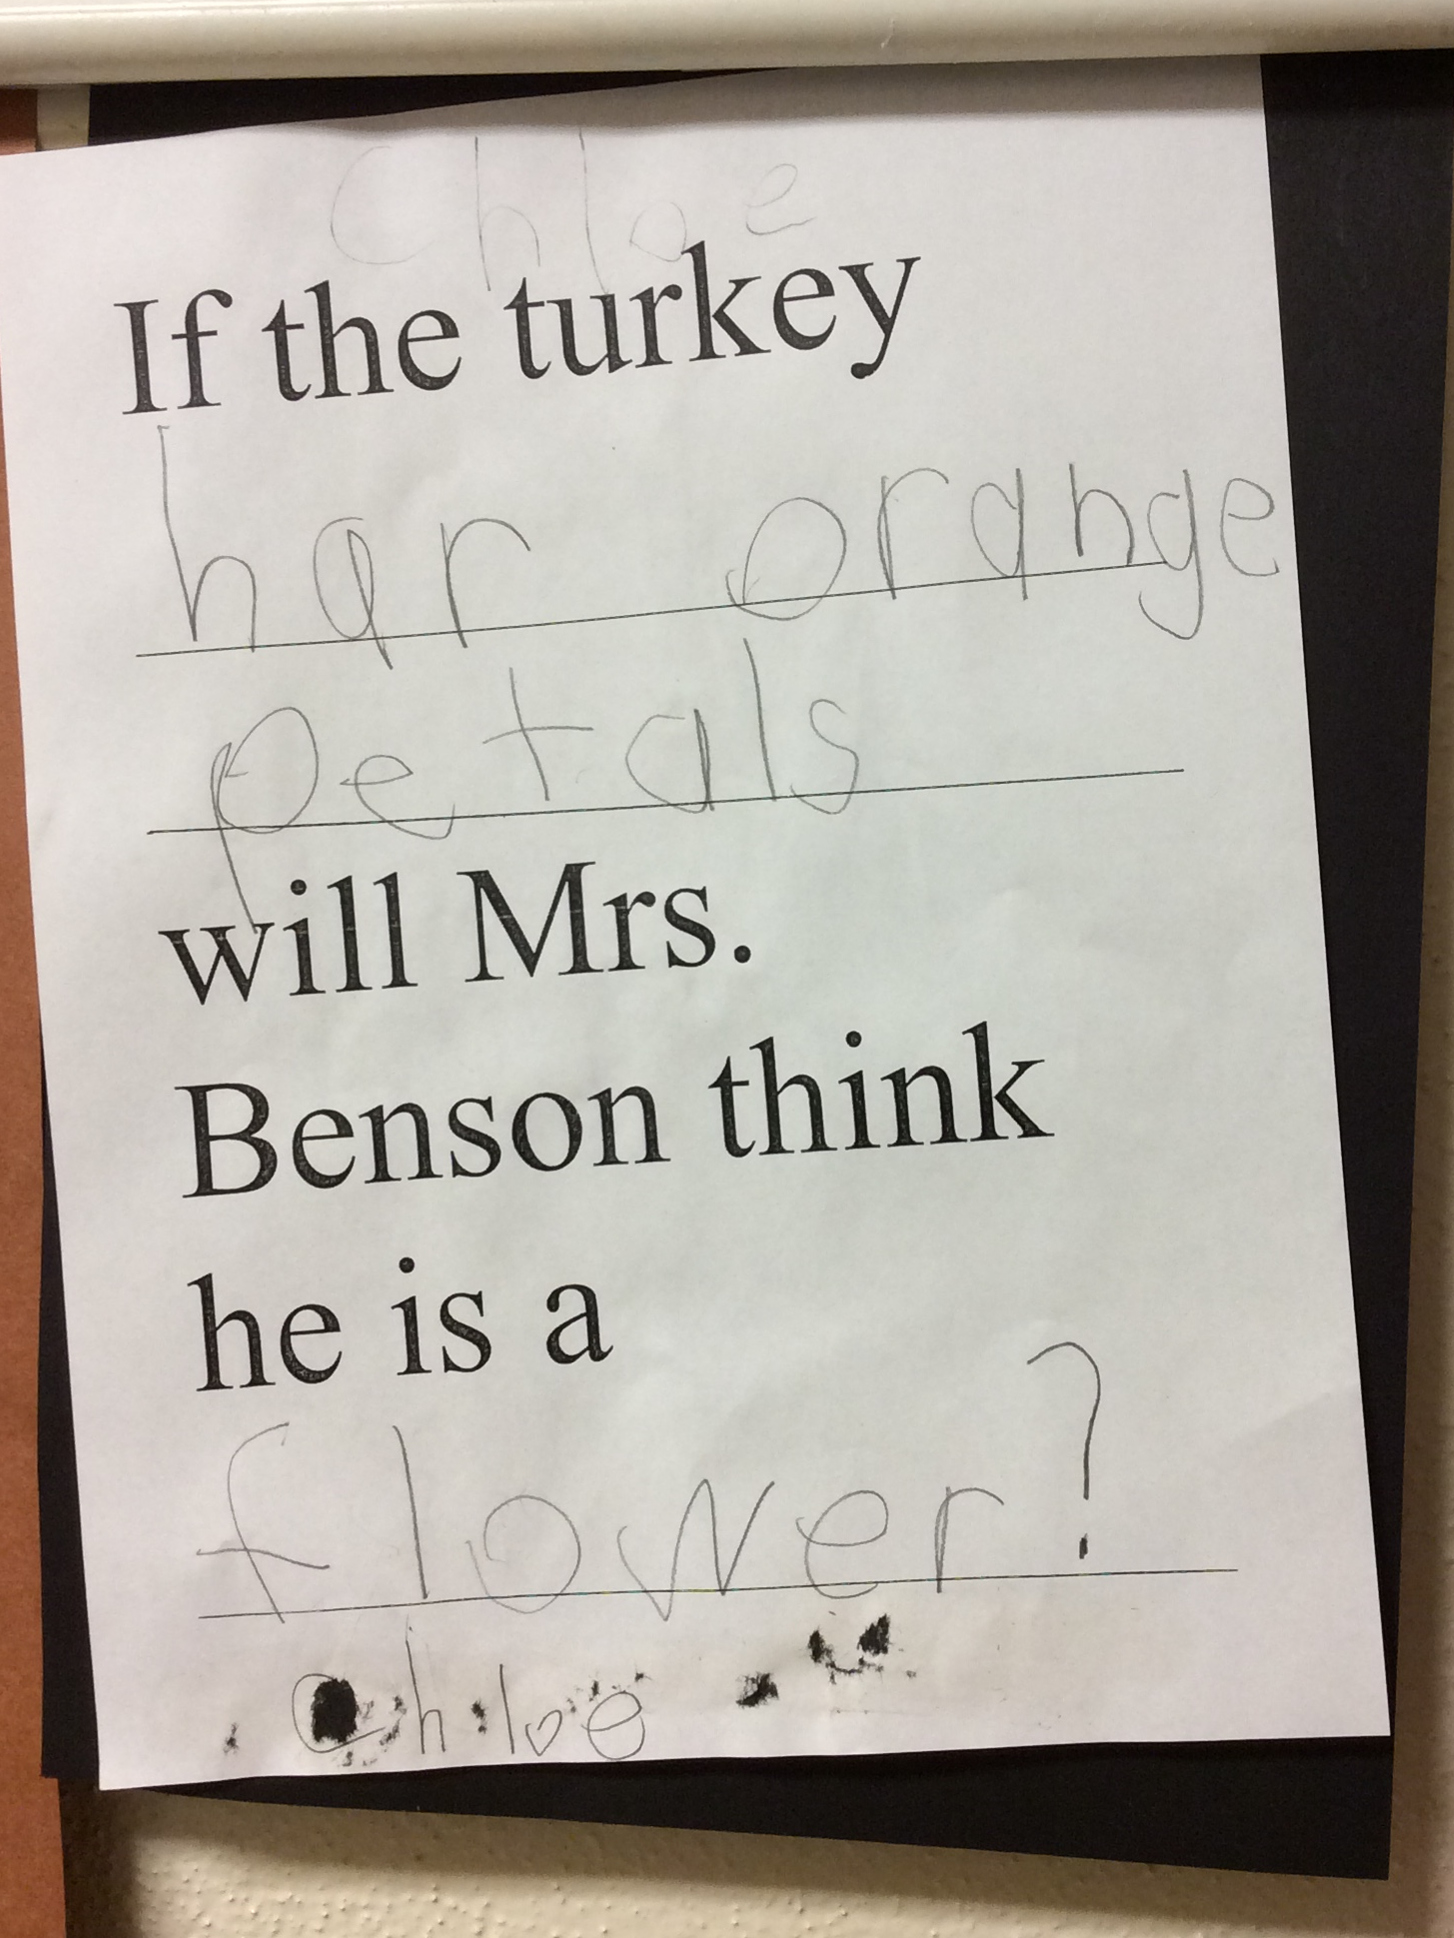 Chloe
If the turkey
har orange
petals
will Mrs.
Benson think
he is a
flower?
Chloe